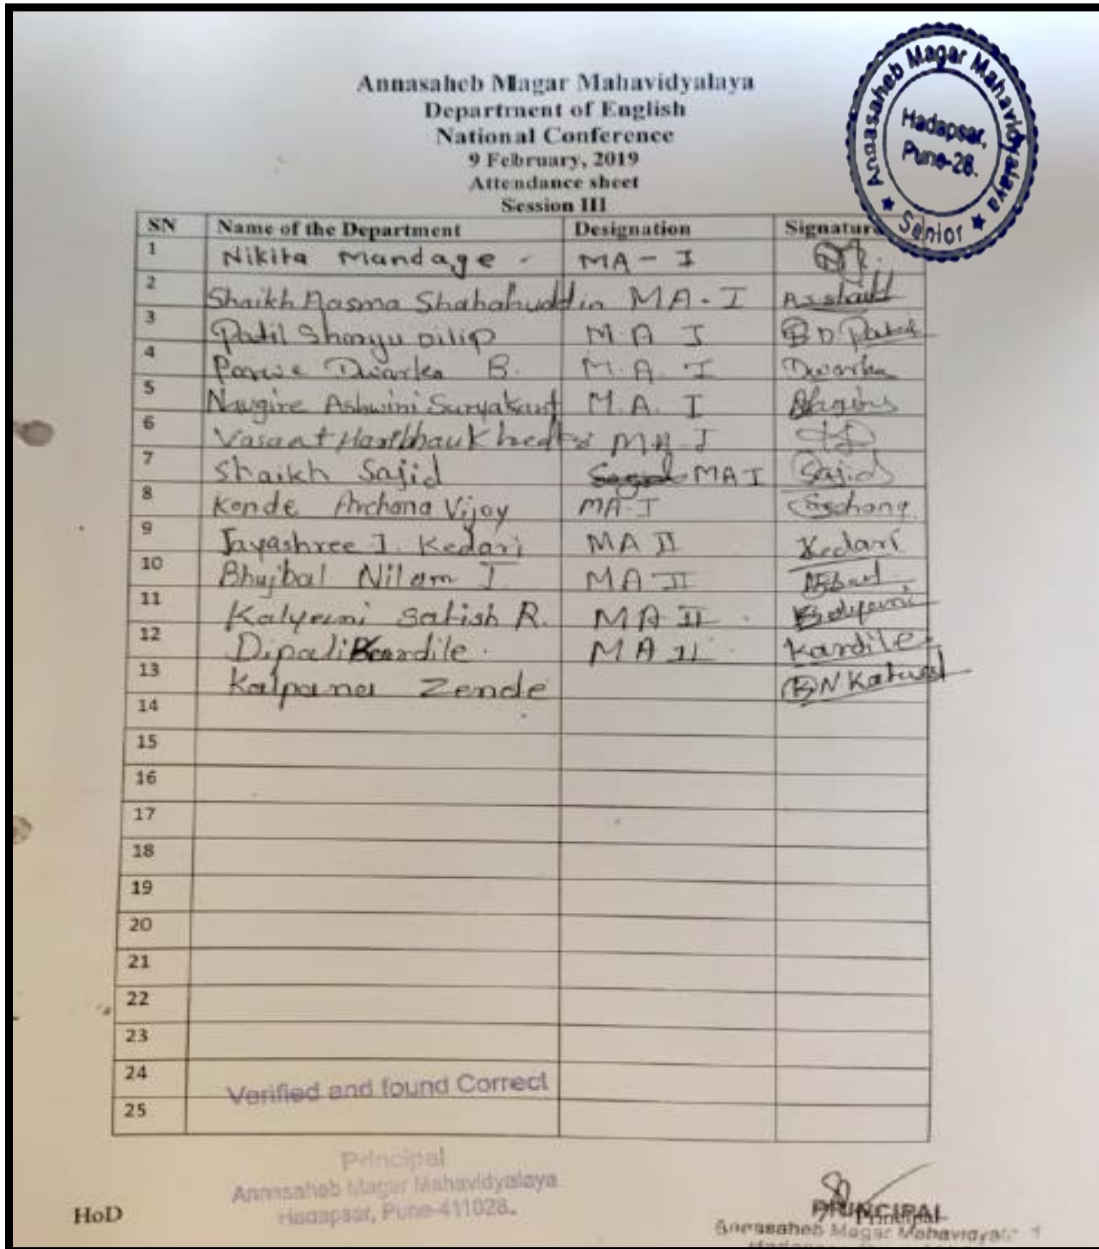 Annasaheb Magar Mahavidyalaya
Department of English
National Conference
9 February, 2019
Attendance sheet
Session III
Annasaheb Magar Mahavidyalaya
Hadapsar,
Pune-28.
★ Senior ★
SN Name of the Department Designation Signature
1 Nikita Mandage - MA - I
2 Shaikh Aasma Shahabuddin MA - I
3 Patil Sharyu Dilip M A I
4 Dwarka B. M.A. I Dwarka
5 Navgire Ashwini Suryakant M.A. I
6 Vasant Haribhau MA - I
7 Shaikh Sajid MA I Sajid
8 Konde Archana Vijay MA - I
9 Jayashree J. Kedari MA II Kedari
10 Bhujbal Nilam I MA II
11 Kalyani Satish R. MA II Kalyani
12 Dipali Kardile MA II Kardile
13 Kalpana Zende
14
15
16
17
18
19
20
21
22
23
24
Verified and found Correct
25
Principal
Annasaheb Magar Mahavidyalaya
Hadapsar, Pune-411028.
HoD
PRINCIPAL
Principal
Annasaheb Magar